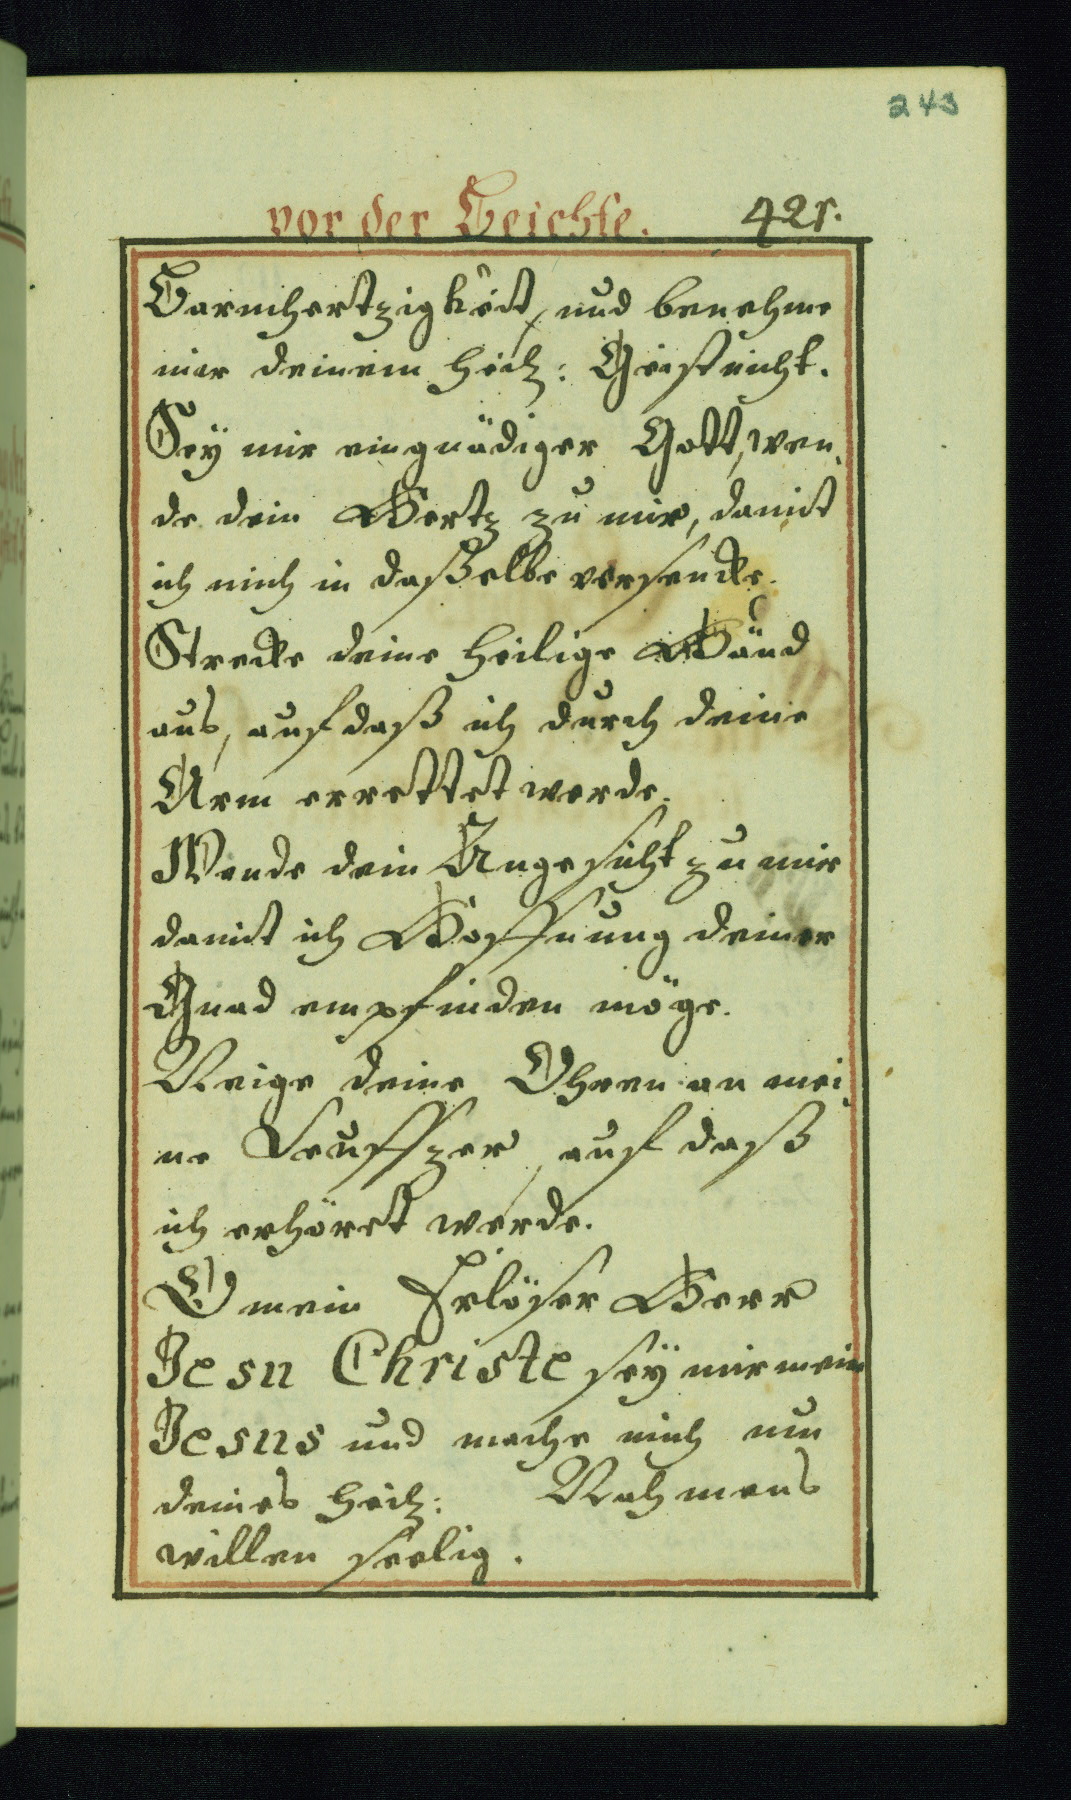 243
vor der Beichte. 421.
Barmhertzigkeit, und benehme
mir deinem heil: Geist nicht.
Sey mir ein gnädiger Gott, wen,
de dein Hertz zu mir, damit
ich mich in daßelbe versencke.
Strecke deine heilige Händ
aus, auf daß ich durch deine
Arm errettet werde.
Wende dein Angesicht zu mir
damit ich Hoffnung deiner
Gnad empfinden möge.
Neige deine Ohren an mei,
ne Seuffzer, auf daß
ich erhöret werde.
O mein Erlöser Herr
Jesu Christe sey mir mein
Jesus und mache mich um
deines heil: Nahmens
willen seelig.